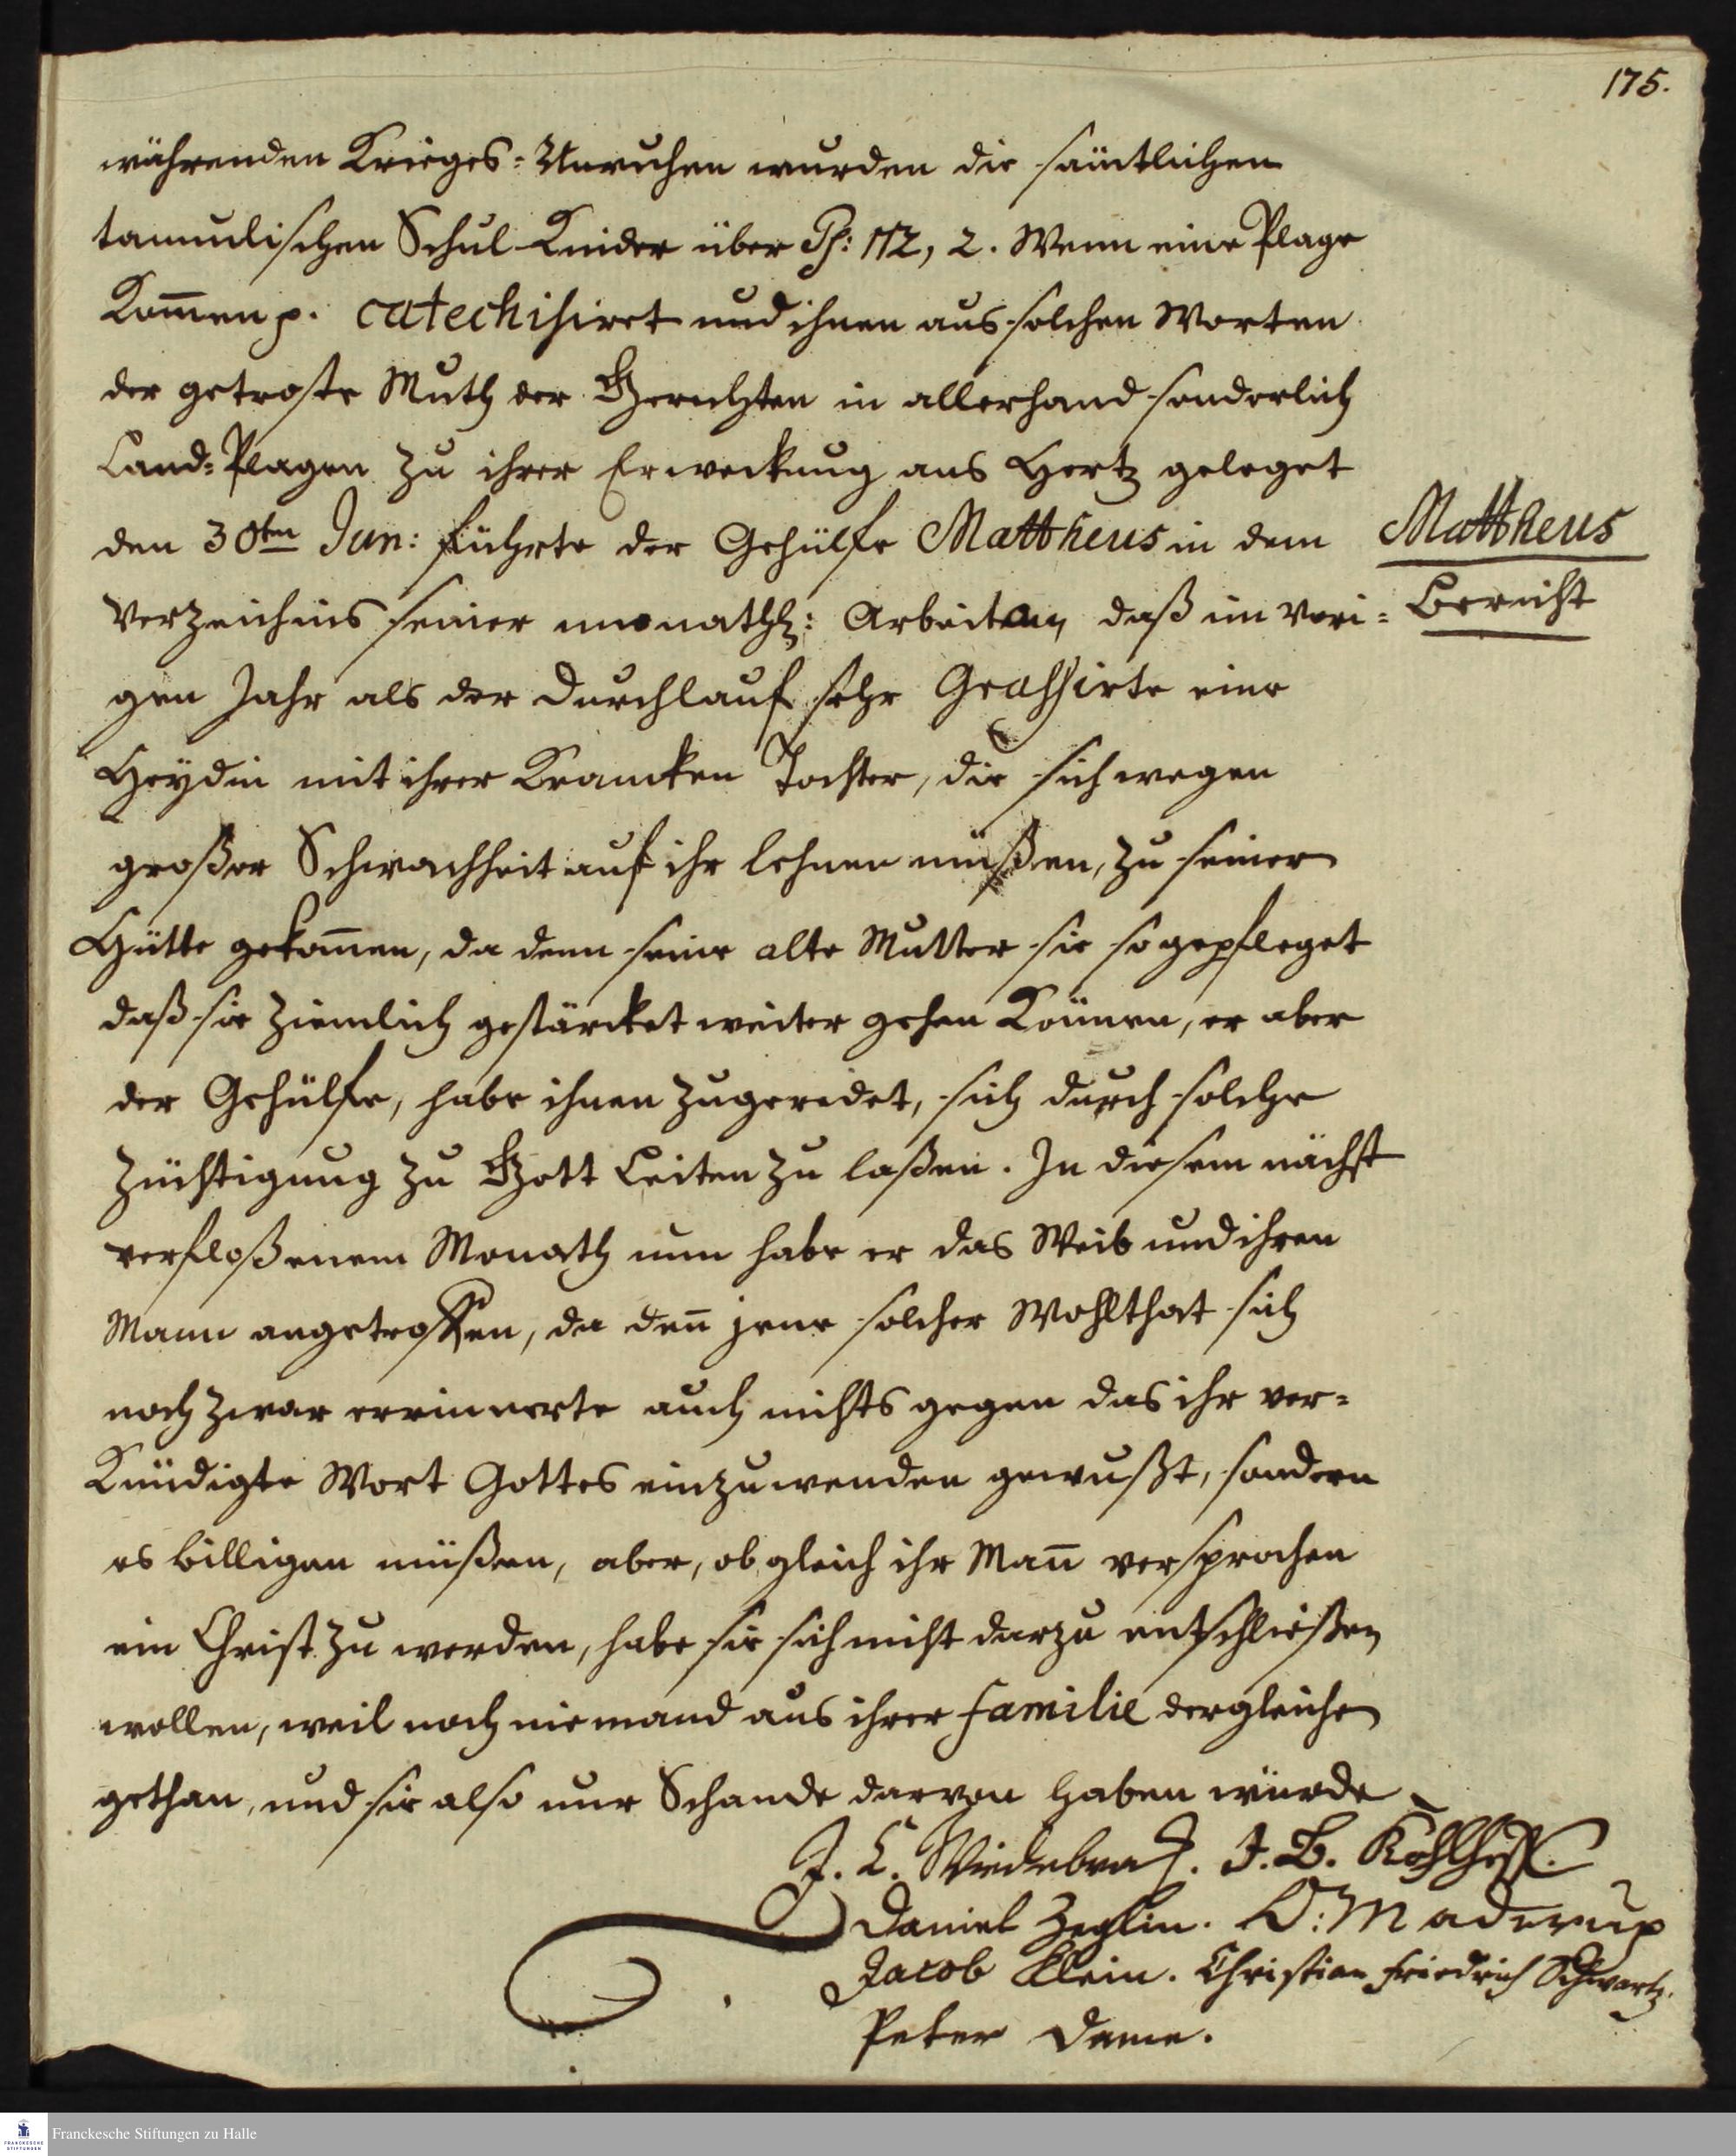 175.
währenden Krieges-Unruhen wurden die sämtlichen
tamulischen Schul-Kinder über Ps: 112, 2. Wenn eine Plage
Kom̄en p. catechisiret und ihnen aus solchen Worten
der getroste Muth der Gerechten in allerhand sonderlich
Land-Plagen zu ihrer Erweckung ans Hertz geleget
den 30ten Jun: führte der Gehülfe Mattheus in dem
Verzeichnis seiner monathl: Arbeiten, daß im vori-
gen Jahr als der Durchlauf sehr Grassirte eine
Heydin mit ihrer Krancken Tochter, die sich wegen
großer Schwachheit auf ihr lehnen müßen, zu seiner
Hütte gekom̄en, da denn seine alte Mutter sie so gepfleget
daß sie ziemlich gestärcket weiter gehen Können, er aber
der Gehülfe, habe ihnen zugeredet, sich durch solche
Züchtigung zu Gott Leiten zu laßen. In diesem nächst
verfloßenem Monath nun habe er das Weib und ihren
Mann angetroffen, da den̄ jene solcher Wohlthat sich
noch zwar errinnerte auch nichts gegen das ihr ver-
Kündigte Wort Gottes einzuwenden gewußt, sondern
es billigen müßen, aber, obgleich ihr Man̄ versprochen
ein Christ zu werden, habe sie sich nicht darzu entschließen
wollen, weil noch niemand aus ihrer familie dergleichen
gethan, und sie also nur Schande darvon haben würde
Mattheus
Bericht
J. C. Wiedebrock. J. B. Kohlhoff.
Daniel Zeglin. O: Maderup
Jacob Klein. Christian Friedrich Schwartz.
Peter Dame.
FRANCKESCHE STIFTUNGEN
Franckesche Stiftungen zu Halle